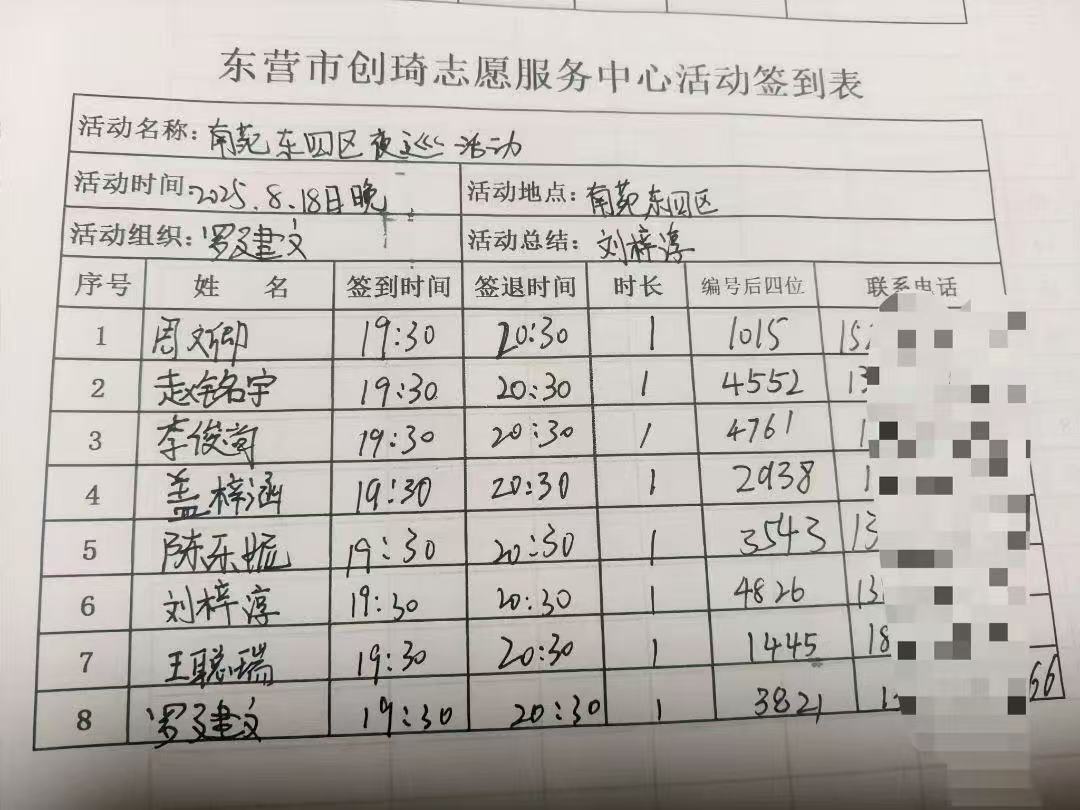 东营市创琦志愿服务中心活动签到表
活动名称: 南苑东四区夜巡活动
活动时间: 2025.8.18日晚 活动地点: 南苑东四区
活动组织: 罗建文 活动总结: 刘梓淳
序号 姓 名 签到时间 签退时间 时长 编号后四位 联系电话
1 周文卿 19:30 20:30 1 1015 15
2 赵铭宇 19:30 20:30 1 4552 13
3 李俊 19:30 20:30 1 4761 1
4 盖梓涵 19:30 20:30 1 2938 1
5 陈乐 19:30 20:30 1 3543 13
6 刘梓淳 19:30 20:30 1 4826 13
7 王聪瑞 19:30 20:30 1 1445 18
8 罗建文 19:30 20:30 1 3821 1 56